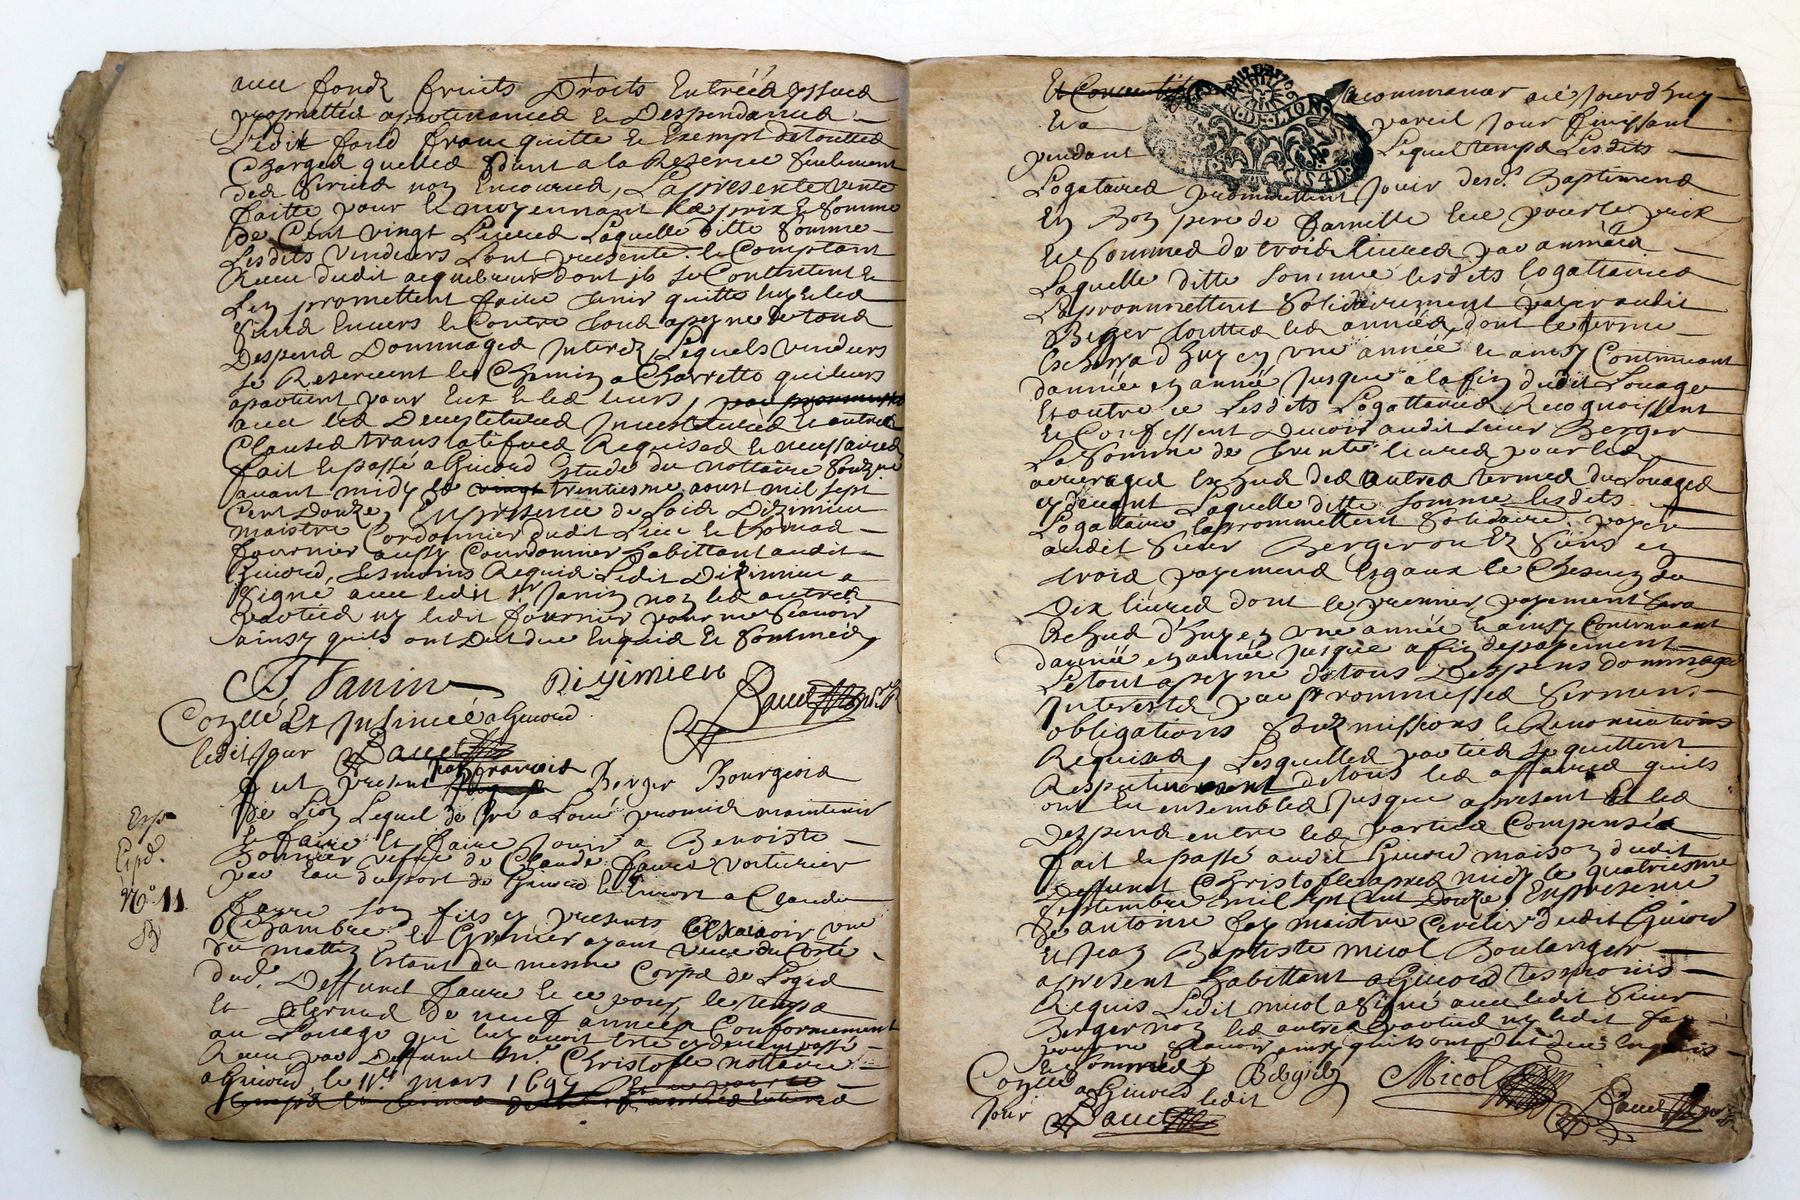 avec fondz fruits Droits Entrées yssues
proprietted apartenances & Despendances
Ledit fond franc quitte & Exempt de touttes
Charges quelles soient a la Reserve seulement
des servies non Encourus, La presente vente
faitte pour & moyennant le prix & somme
de Cent vingt Livres Laquelle ditte somme
Lesdits vendeurs ont presente le Comptant
Receu dudit acquebreur dont ils se Contentent &
Len promettent faire tenir quitte luy & les
siens Envers & Contre tous a peyne de tous
Despens Dommages Interez, Lequels vendeurs
se Reservent le Chemin a Charrette qui leurs
apartient pour Eux & les leurs, par promesses
avec les Devestitures Investitures & autres
Clauses translatifves Requises & necessaires
fait & passé a Givord Estude du nottaire soubzné
avant midy le vingt trentiesme aoust mil sept
Cent Douze, En presence de Dizimieu
maistre Cordonnier dudit Lieu & Thomas
fournier aussy Courdonnier habittant audit
Givord, tesmoins Requis Ledit Dizimieu a
signé avec ledit Sr Janin non les autres
parties ny ledit fournier pour ne scavoir
ainsy quils ont Dit due Enquis & sommés,
Janin Dizimieu
Collé Et Insinué a Givord
ledit jour
fut present Jean francois Berger Bourgeois
De Lion Lequel de gré a Loué promis maintenir
& faire & faire jouir a Benoiste
Bonnier vefve de Claude faure voiturier
par Eau du port de Givord & Encore a Claude
Exp
Expd.
No. 11
faure son fils cy presents Ascavoir une
Chambre & Grenier ayant veue du Costé
du mattin Estant du mesme Corps de Logis
dud. Deffunct faure & ce pour le temps
Et termes de neuf années Conformement
au Louage qui luy avoit Esté cy devant passé
Receu par Deffunct Me. Christofle nottaire
a Givord le 11e mars 1697
Et Consentis a commancer au jourdhuy
& a pareil jour finissant
pendant Lequel temps Lesdits
Logataires promettent jouir desd. Baptimens
En Bon pere de famille & ce pour le prix
& sommes de trois livres par années
Laquelle ditte somme lesdits logattaires
Promettent solidairement payer audit
Berger touttes les années, dont le terme
Escherra d'huy en une année & ainsy Continuant
dannée en année jusques a la fin dudit Louage
Et outre ce Lesdits Logattaires Recognoissent
& Confessent Devoir audit sieur Berger
La somme de trente livres pour les
arrerages Escheus des autres termes du Louages
cy devant Laquelle ditte somme lesdits
Logataires promettent solidaire. payer
audit sieur Berger ou Ez siens en
trois payemens Esgaux & Chescun de
Dix livres dont le premier payement sera
Escheus d'huy en une année & ainsy Continuant
dannée en année jusques a fin de payement
Le tout a peyne de tous Despens Dommages
Interests par promesses sermens
obligations soubzmissions & Renonciations
Requises, Lesquelles parties se quittent
Respectivement de tous les affaires quils
ont Eu ensembles jusques a present & les
Despens entre les parties Compensés
fait & passé audit Givord maison dudit
Deffunct Christofle apres midy le quatriesme
septembre mil sept Cent Douze, En presence
de Antoine fay maistre dudit Givord
Et Jean Baptiste micol Boulanger
a present habittant a Givord tesmoins
Requis Ledit micol a signé avec ledit sieur
Berger non les autres parties ny ledit fay
pour ne scavoir ainsy quils ont dit due Enquis
& sommés,
Collé a Givord ledit
jour
Micol
G. DE LION